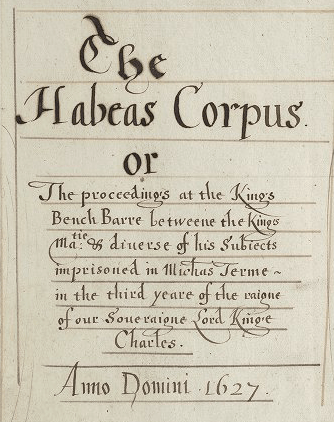 The
Habeas Corpus.
or
The proceedings at the Kings
Bench Barre betweene the Kings
Ma:tie & diuerse of his Subiects
imprisoned in Michas Terme ~
in the third yeare of the raigne
of our Soueraigne Lord Kinge
Charles.
Anno Domini 1627.